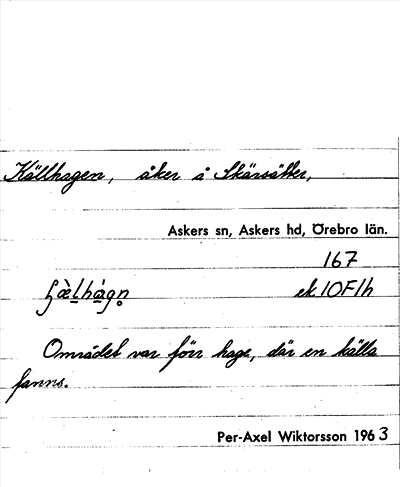 Källhagen, åker å Skärsätter,
Askers sn, Askers hd, Örebro län.
167
ek 10F1h
Området var förr hage, där en källa
fanns.
Per-Axel Wiktorsson 1963